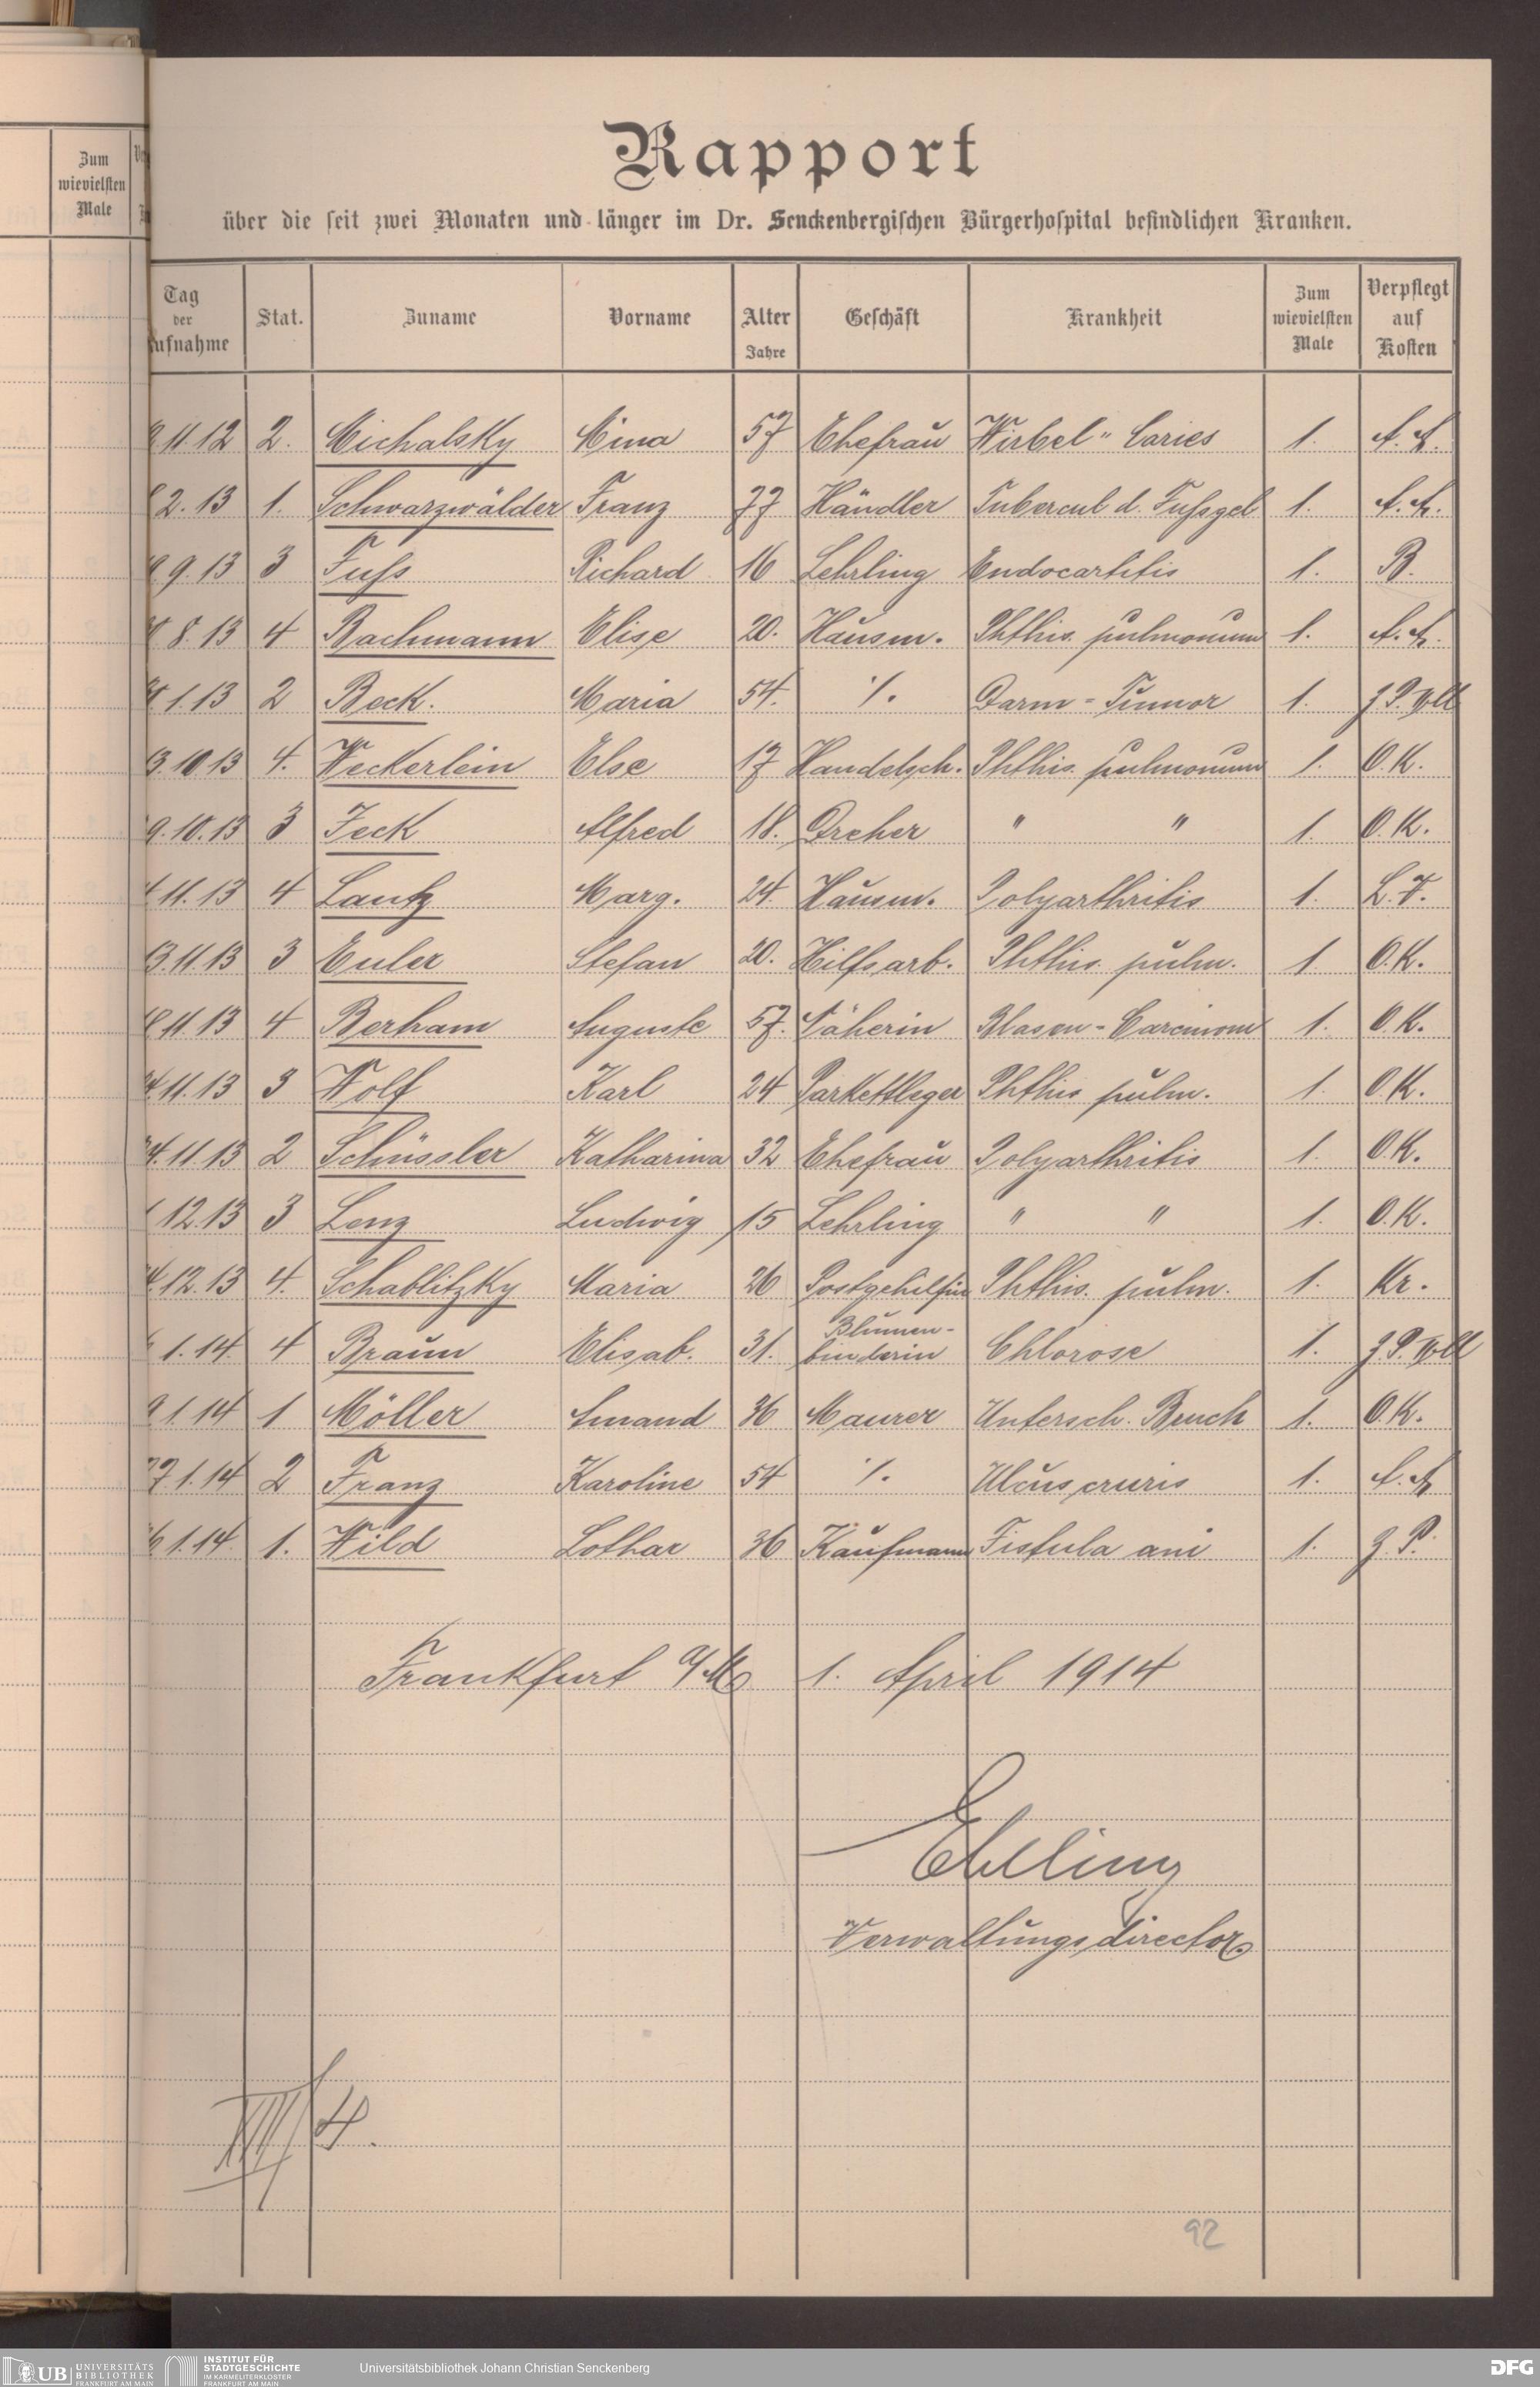 Zum
wievielsten
Male
Rapport
über die seit zwei Monaten und länger im Dr. Senckenbergischen Bürgerhospital befindlichen Kranken.
Tag der Aufnahme Stat. Zuname Vorname Alter Jahre Geschäft Krankheit Zum wievielsten Male Verpflegt auf Kosten
11.12 2. Michalsky Mina 57 Ehefrau Wirbel-Caries 1. A. A.
2.13 1. Schwarzwälder Franz 77 Händler Tubercul d. Fußgel 1. A. A.
9.13 3 Fuß Richard 16 Lehrling Endocartitis 1. B.
8.13 4 Bachmann Elise 20. Hausm. Phthis. pulmonum 1. A. A.
1.13 2 Beck. Maria 54. ·/. Darm-Tumor 1.
3.10.13 4. Weckerlein Else 17 Handelsch. Phthis. pulmonum 1. O. K.
9.10.13 3 Jeck Alfred 18. Dreher " " 1. O. K.
11.13 4 Lautz Marg. 24. Hausm. Polyarthritis 1.
3.11.13 3 Euler Stefan 20. Hilfsarb. Phthis. pulm. 1 O. K.
11.13 4 Bertram Auguste 57. Näherin Blasen-Carcinom 1. O. K.
4.11.13 3 Wolf Karl 24 Parkettleger Phthis pulm. 1. O. K.
4.11.13 2 Schüssler Katharina 32 Ehefrau Polyarthritis 1. O. K.
12.13 3 Lenz Ludwig 15 Lehrling " " 1. O. K.
4.12.13 4. Schablitzky Maria 26 Postgehilfin Phthis. pulm. 1. Kr.
1.14. 4 Braun Elisab. 31. Blumen-
binderin Chlorose 1.
1.14 1 Möller Amand 36 Maurer Untersch. Bruch 1. O. K.
7.1.14 2 Franz Karoline 54 ·/. Ulcus cruris 1. A. A.
6 1.14. 1. Wild Lothar 36 Kaufmann Fistula ani 1.
Frankfurt a/M 1. April 1914
Verwaltungsdirector
92
UB UNIVERSITÄTS
BIBLIOTHEK
FRANKFURT AM MAIN
INSTITUT FÜR
STADTGESCHICHTE
IM KARMELITERKLOSTER
FRANKFURT AM MAIN
Universitätsbibliothek Johann Christian Senckenberg
DFG